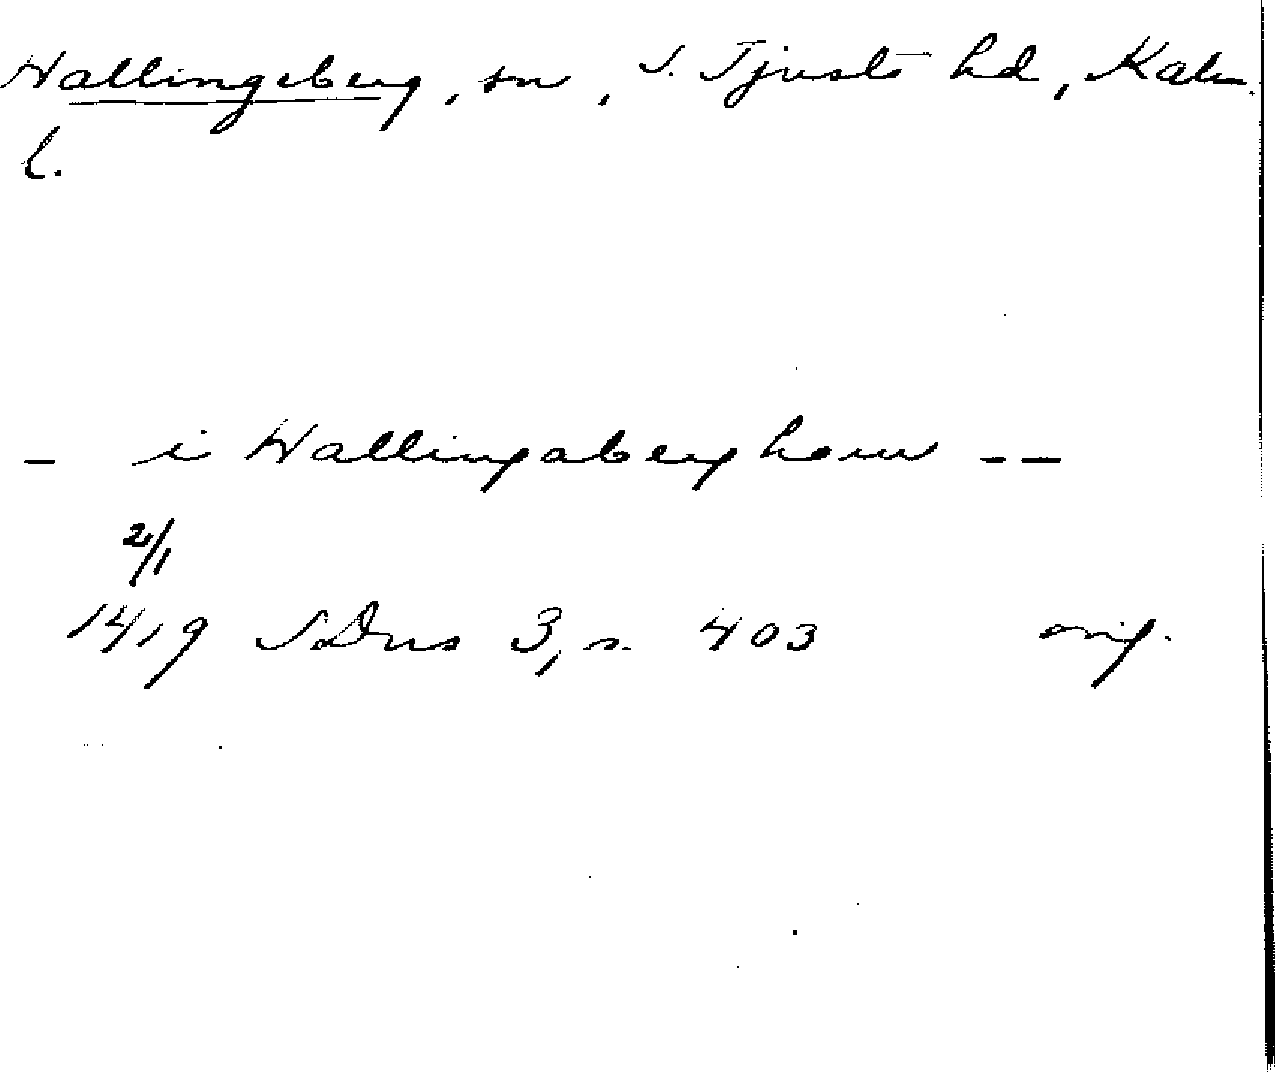 Hallingeberg, sn, S. Tjusts hd, Kalm.
l.
- i Hallingaberghom --
2/1
1419 SDns 3, s. 403 orig.